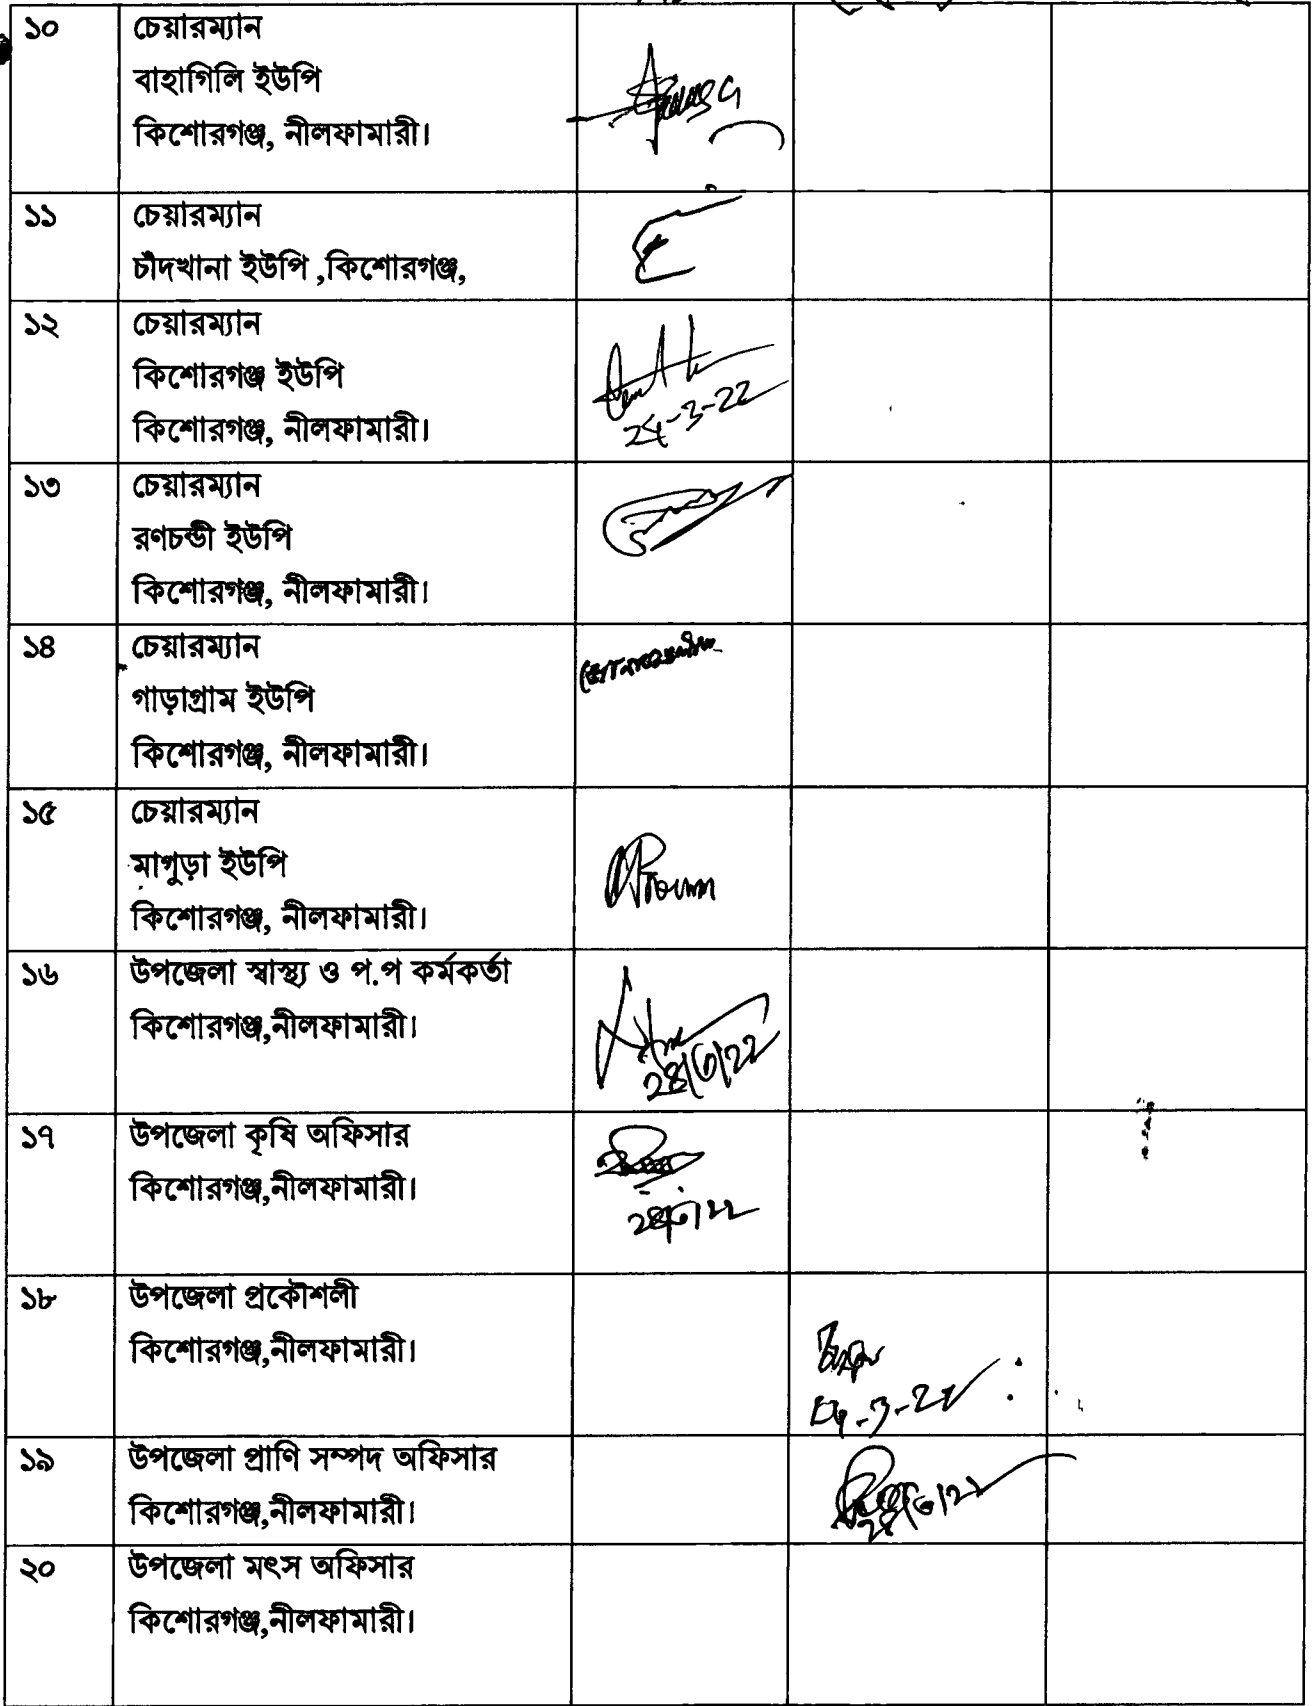 ১০
চেয়ারম্যান
বাহাগিলি ইউপি
কিশোরগঞ্জ, নীলফামারী।
১১
চেয়ারম্যান
চাঁদখানা ইউপি ,কিশোরগঞ্জ,
১২
চেয়ারম্যান
কিশোরগঞ্জ ইউপি
কিশোরগঞ্জ, নীলফামারী।
24-3-22
১৩
চেয়ারম্যান
রণচন্ডী ইউপি
কিশোরগঞ্জ, নীলফামারী।
১৪
চেয়ারম্যান
গাড়াগ্রাম ইউপি
কিশোরগঞ্জ, নীলফামারী।
১৫
চেয়ারম্যান
মাগুড়া ইউপি
কিশোরগঞ্জ, নীলফামারী।
১৬
উপজেলা স্বাস্থ্য ও প.প কর্মকর্তা
কিশোরগঞ্জ,নীলফামারী।
২৪/৩/২২
১৭
উপজেলা কৃষি অফিসার
কিশোরগঞ্জ,নীলফামারী।
২৪/৩/২২
১৮
উপজেলা প্রকৌশলী
কিশোরগঞ্জ,নীলফামারী।
১৯
উপজেলা প্রাণি সম্পদ অফিসার
কিশোরগঞ্জ,নীলফামারী।
২৪/৩/২২
২০
উপজেলা মৎস অফিসার
কিশোরগঞ্জ,নীলফামারী।